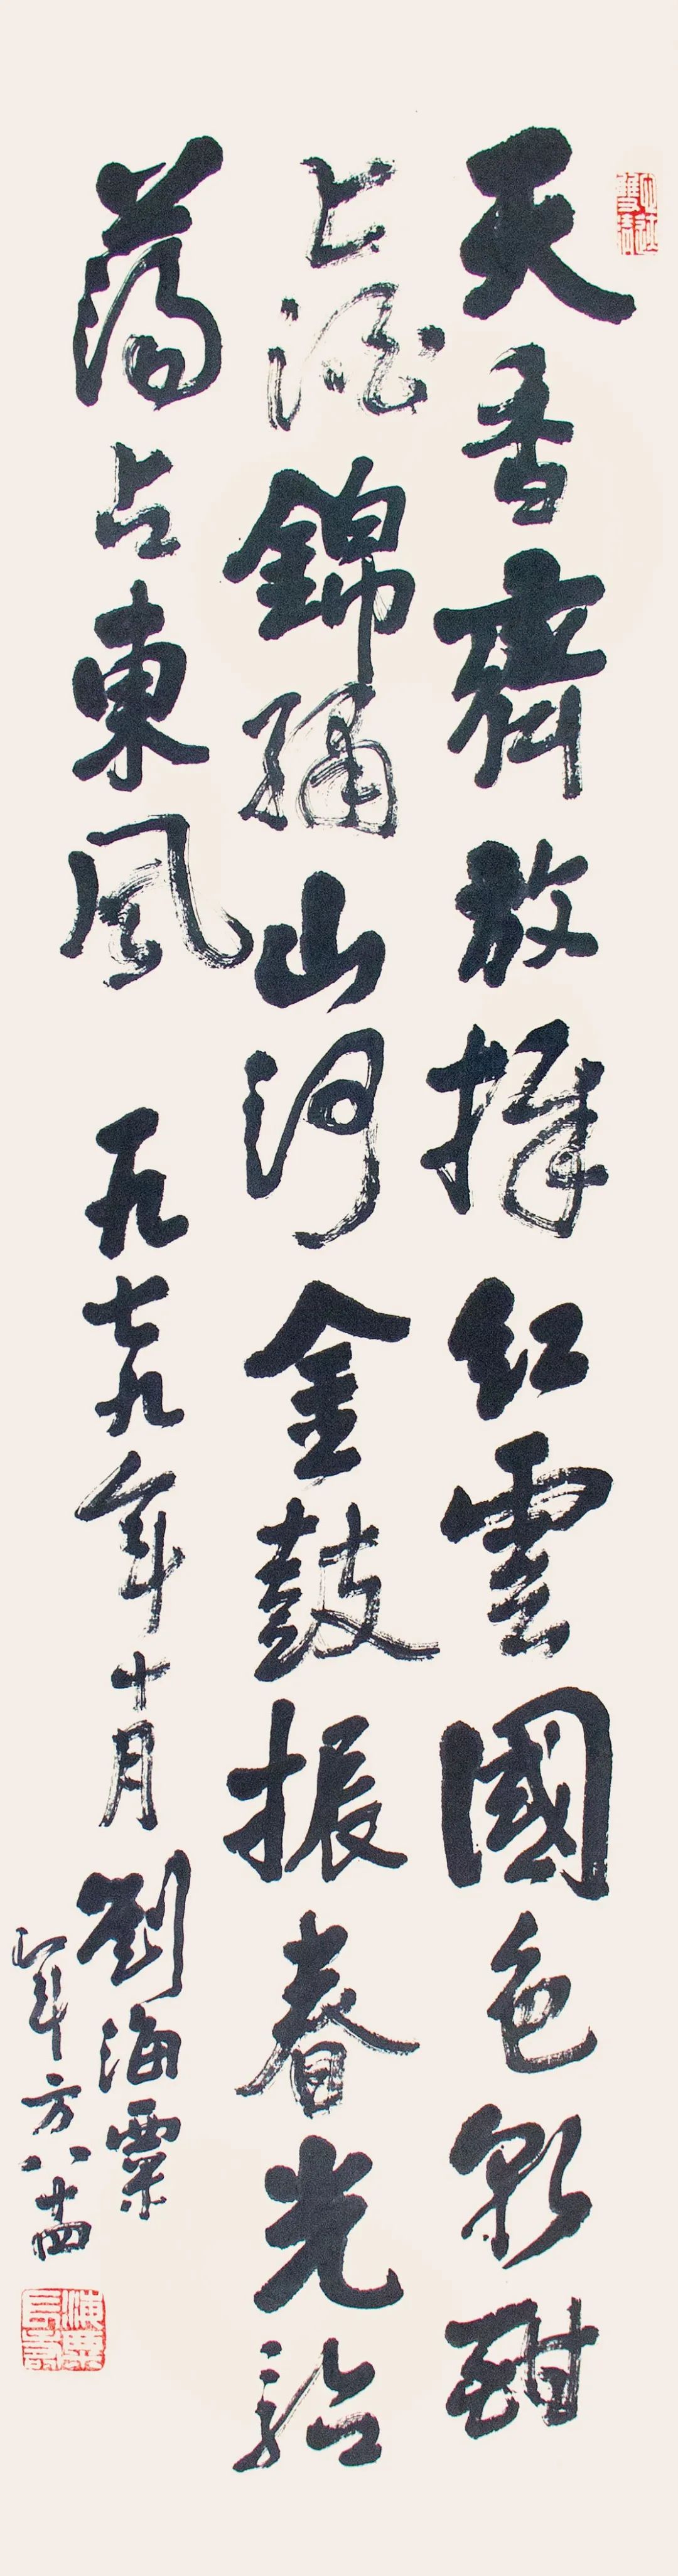 天香齊放擁紅雲國色朝酣
上酒錦繡山河金鼓振春光駘
蕩占東風 一九七九年十月 劉海粟
年方八十四
海粟